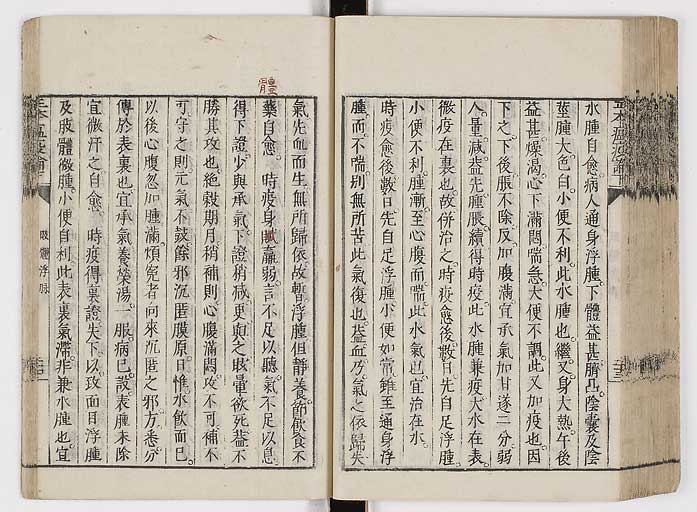 水腫自愈病人通身浮腫下體益甚臍凸陰囊及陰
莖腫大色白小便不利此水腫也繼又身大熱午後
益甚燥渴心下滿悶喘急大便不調此又加疫也因
下之下後脹不除反加腹滿宜承氣加甘遂二分弱
人量減葢先腫脹續得時疫此水腫兼疫大水在表
微疫在裏也故併治之時疫愈後數日先自足浮腫
小便不利腫漸至心腹而喘此水氣也宜治在水
時疫愈後數日先自足浮腫小便如常雖至通身浮
腫而不喘別無所苦此氣復也葢血乃氣之依歸夫
氣先血而生無所歸依故暫浮腫但靜養節飲食不
藥自愈 時疫身羸弱言不足以聽氣不足以息
得下證少與承氣下證稍減更與之眩暈欲死葢不
勝其攻也絶穀期月稍補則心腹滿悶攻不可補不
可守之則元氣不鼓餘邪沉匿膜原日惟水飲而已
以後心腹忽加腫滿煩寃者向來沉匿之邪方悉分
傳於表裏也宜承氣養榮湯一服病已設表腫未除
宜微汗之自愈 時疫得裏證失下以攻面目浮腫
及肢體微腫小便自利此表裏氣滯非兼水腫也宜
體
浮脉